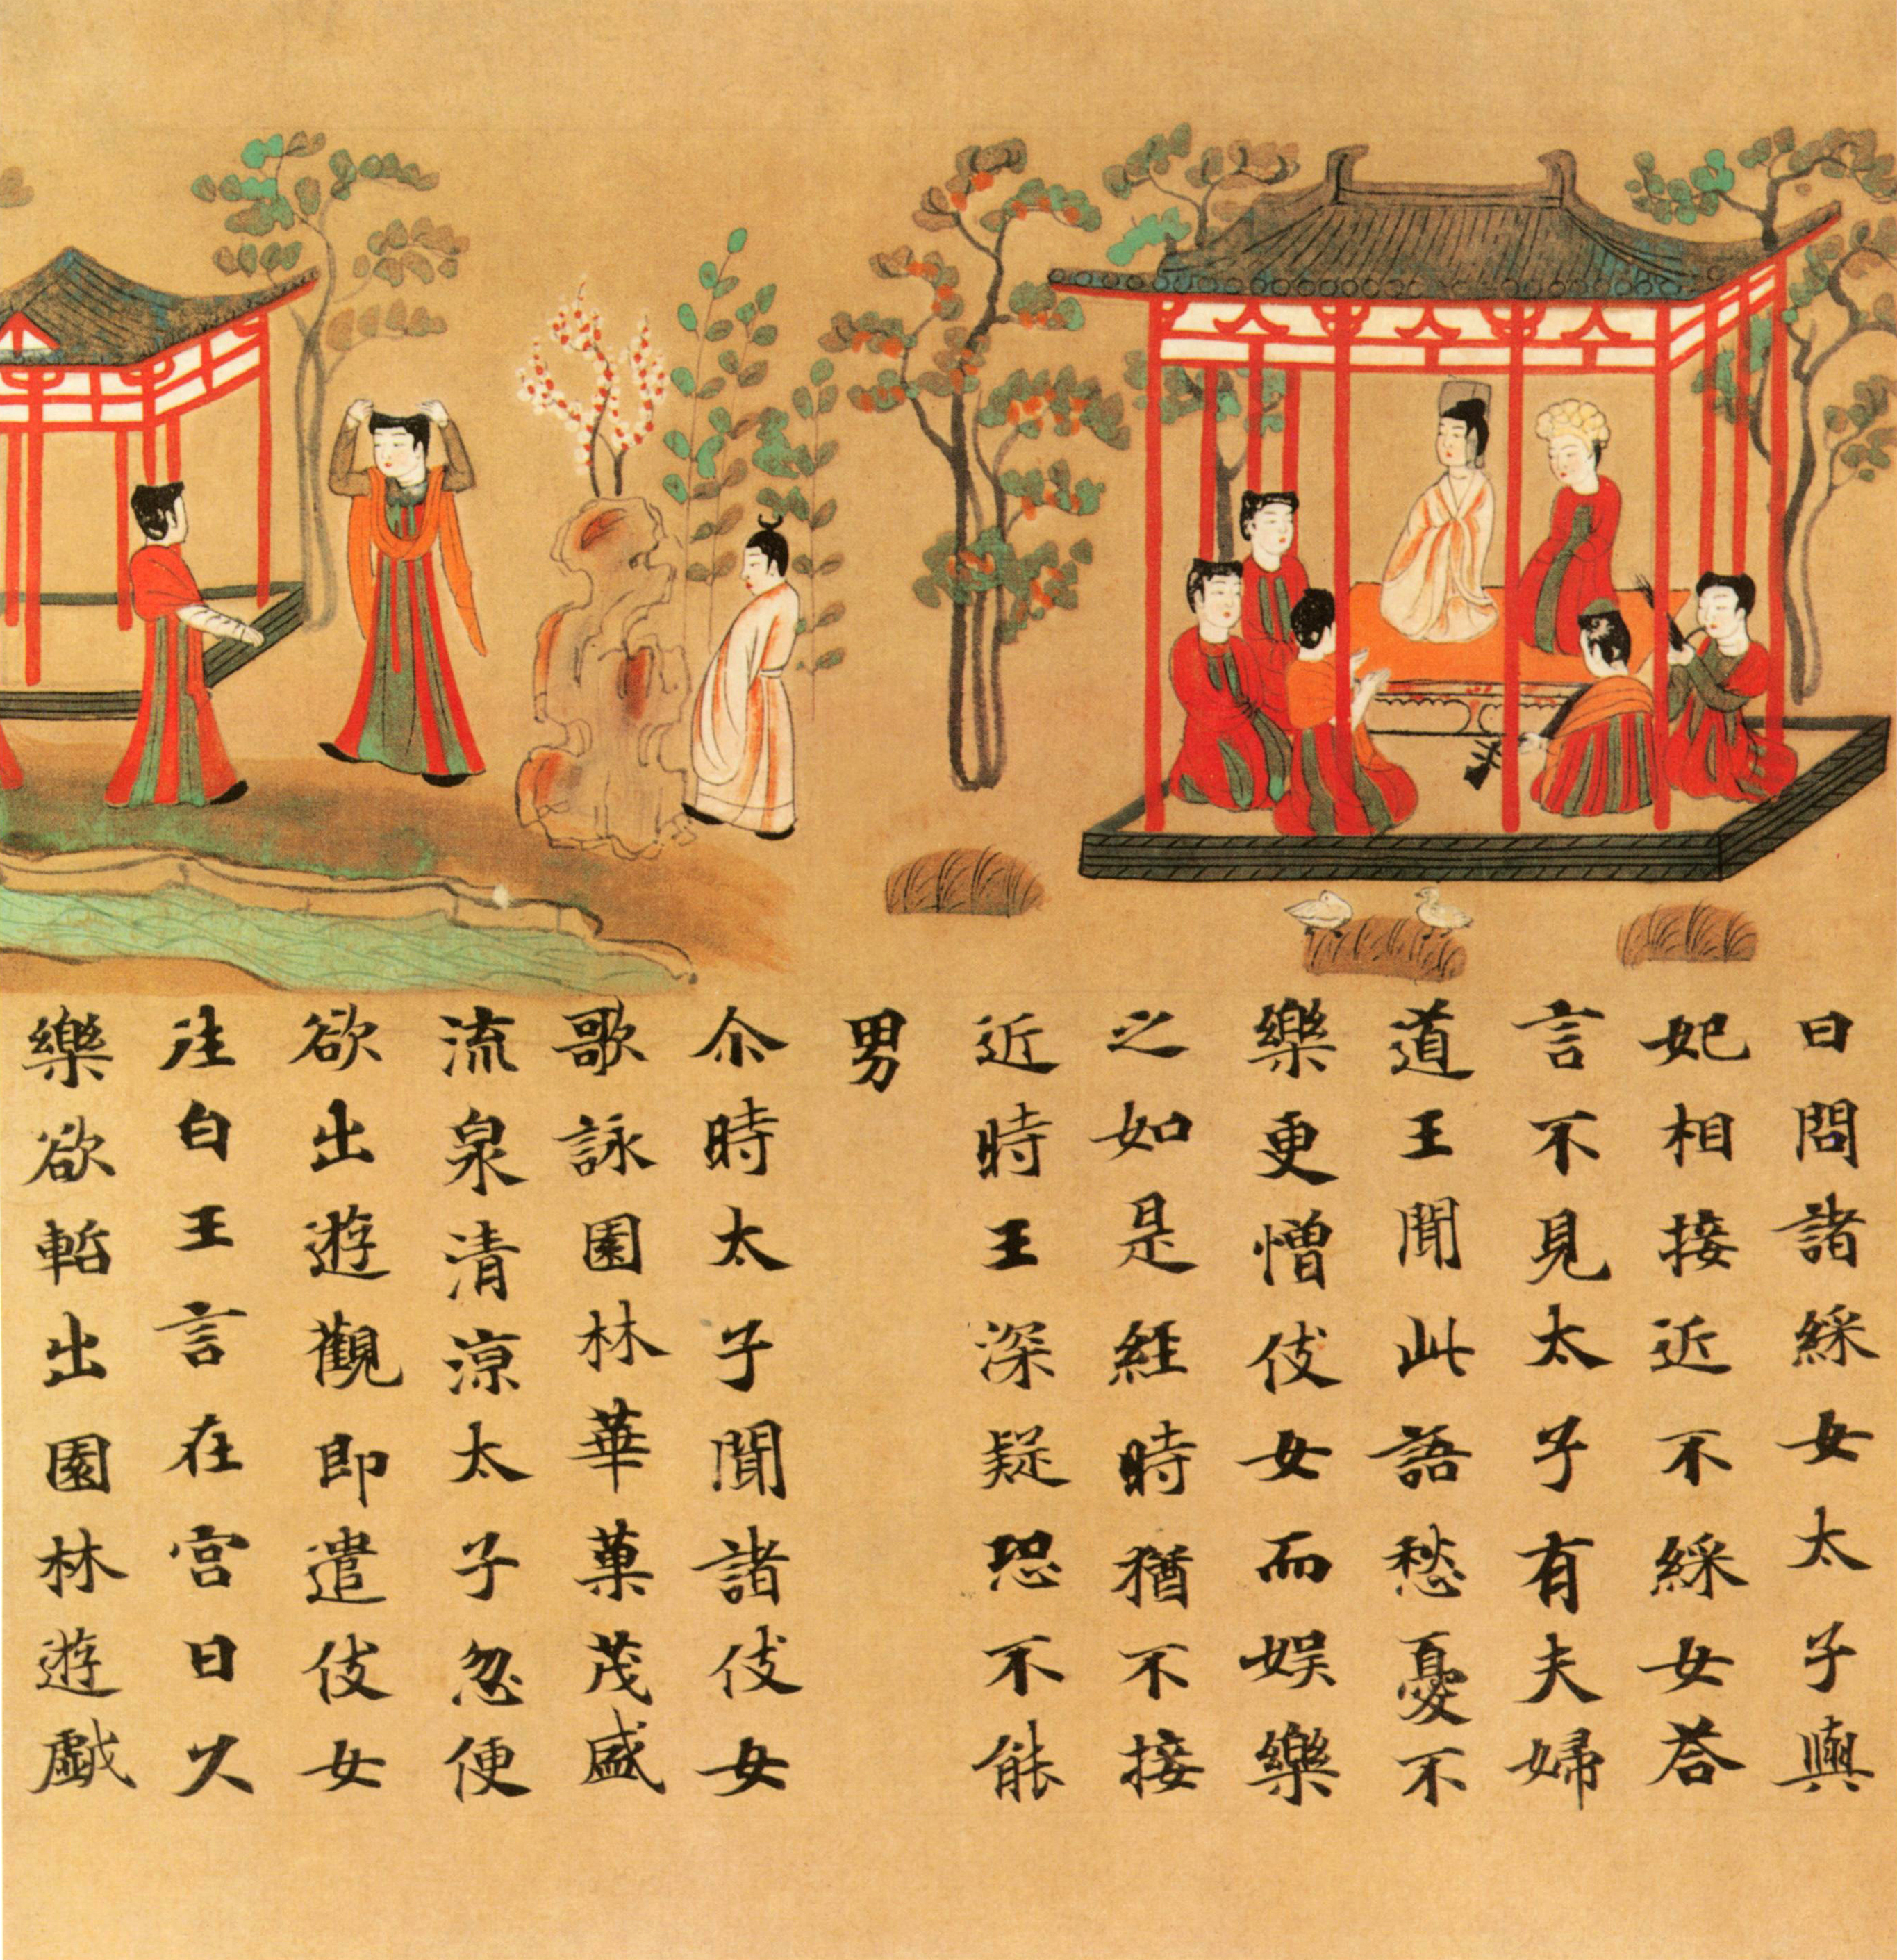 日問諸綵女太子與
妃相接近不綵女荅
言不見太子有夫婦
道王聞此語愁憂不
樂更憎伎女而娱樂
之如是經時猶不接
近時王深疑恐不能
男
尒時太子聞諸伎女
歌詠園林華菓茂盛
流泉清涼太子忽便
欲出遊觀即遣伎女
往白王言在宮日久
樂欲暫出園林遊戯